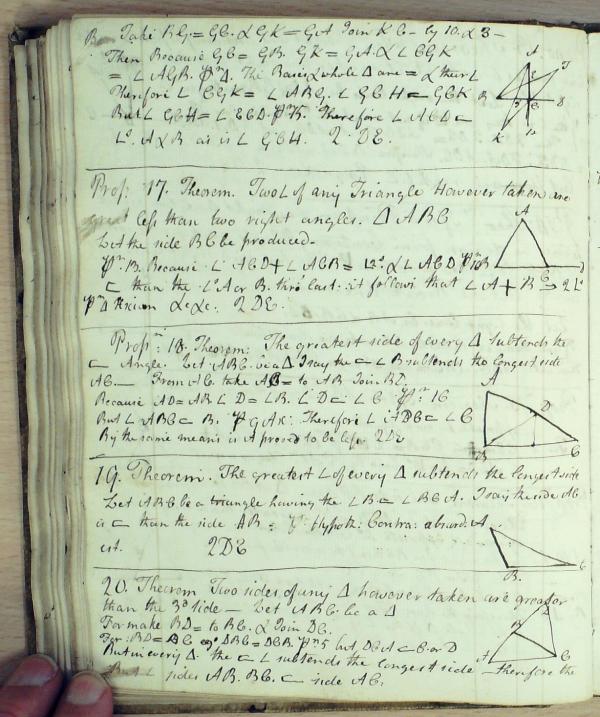 B. Take BG = GC. & GK = GA Join K C - by 10. & 3 -
Then Because GC = GB. GK = GA. & ∠ CGK
= ∠ AGB. Pⁿ 4. The Bases & whole Δ are = & their ∠
Therefore ∠ CGK = ∠ ABG. ∠ GCH ⊏ GCK
But ∠ GCH = ∠ ECD. Pⁿ 15. Therefore ∠ ACD ⊏
∠ˢ. A & B as is ∠ GCH. 2. DE.
Prop: 17. Theorem. Two ∠ of any Triangle However taken are
less than two right angles. Δ ABC
Let the side BC be produced.
Pⁿ: 13. Because ∠ ACD + ∠ ACB = & ∠ ACD Pⁿ 16
⊏ than the ∠ˢ A or B. this last: it follows that ∠ A + B 2 ∠ˢ
Axiom &c. &c. 2DE.
Propⁿ: 18. Theorem: The greatest side of every Δ Subtends the
⊏ Angle. Let ABC. be a Δ I say the ⊏ ∠ B subtends the longest side
AC. — From AC. take AD = to AB Join BD.
Because AD = AB ∠ D = ∠ B. ∠ D ⊏ ∠ C Pⁿ 16
But ∠ ABC ⊏ B. P 9 Ax: Therefore ∠ ADB ⊏ ∠ C
By the same means is A proved to be less 2DE
19. Theorem. The greatest ∠ of every Δ subtends the longest side
Let ABC be a triangle having the ∠ B ⊏ ∠ BCA. I say the side AC
is ⊏ than the side AB = Hypoth: Contra: absurd.
est. 2DE
20. Theorem Two sides of any Δ however taken are greater
than the 3ᵈ side — Let ABC. be a Δ
For make BD = to BC. & Join DC.
For: BD = BC DBC = DCB. Pⁿ 5 but DCA ⊏ B or D
But in every Δ the ⊏ ∠ subtends the longest side — therefore the
sides AB. BC. ⊏ side AC.